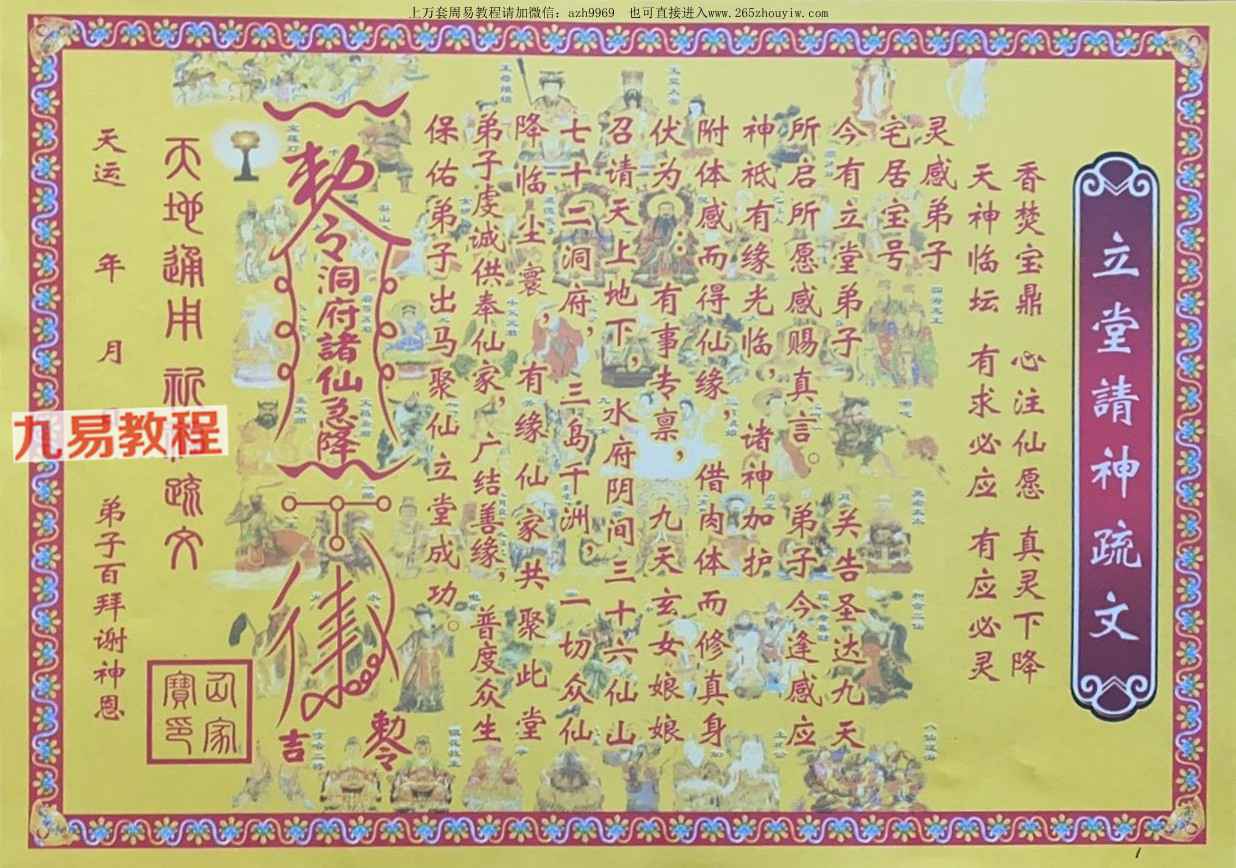 上万套周易教程请加微信：azh9969　也可直接进入www.265zhouyiw.com
立堂請神疏文
香焚宝鼎 心注仙愿 真灵下降
天神临坛 有求必应 有应必灵
灵感弟子
宅居宝号
今有立堂弟子 具关告圣达九天
所启所愿感赐真言。弟子今逢感应
神祗有缘光临，诸神加护
附体感而得仙缘，借肉体而修真身
伏为：有事专禀，九天玄女娘娘
召请天上地下，水府阴间三十六仙山
七十二洞府，三岛千洲，一切众仙
降临尘寰，有缘仙家共聚此堂
弟子虔诚供奉仙家，广结善缘，普度众生
保佑弟子出马聚仙立堂成功。
敕令洞府諸仙急降
敕令
吉
天地通用祈 疏文
天运 年 月 弟子百拜谢神恩
仙家寶印
九易教程